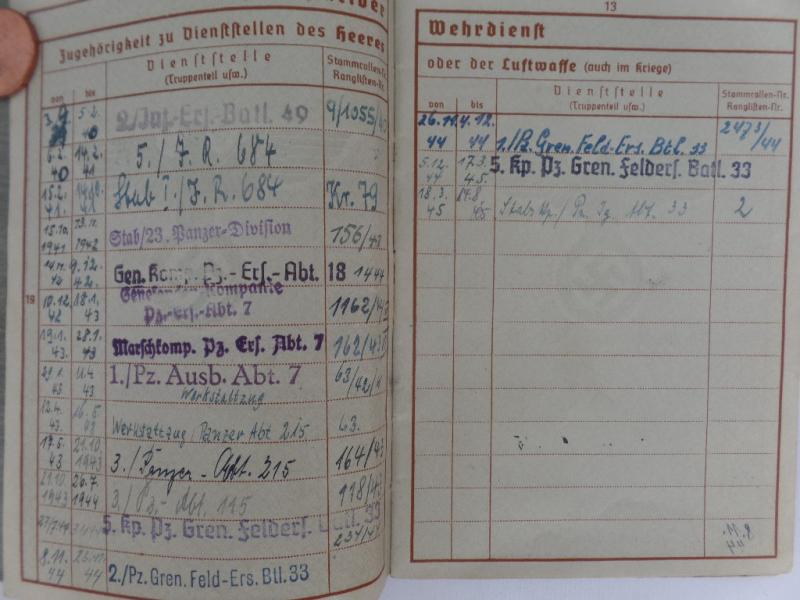 Zugehörigkeit zu Dienststellen des Heeres
von bis Dienststelle Stammrollen-Nr.
(Truppenteil usw.) Ranglisten-Nr.
2/Inf.-Ers.-Batl. 49 9/1055/40
6.2. 14.2. 5./J.R. 684
40 41
15.2. Stab I./J.R. 684 Kr. 79
41
15.10. Stab/23. Panzer-Division 156/43
1941 1942
9.12. Gen. Komp. Pz.-Ers.-Abt. 18 1444
42
Kompanie
19 10.12. 18.1. Pz.-Ers.-Abt. 7 1162/42
42 43
19.1. 28.1. Marschkomp. Pz. Ers. Abt. 7 162/43
43. 43
29.1. 11.4. 1./Pz. Ausb. Abt. 7 63/42
43. 43
Werkstattzug
12.4. 16.5. Werkstattzug Panzer Abt 215 63.
43. 43
17.5. 21.10. 3./Panzer-Abt. 215 164/43
43 1943
21.10. 26.7. 3./Pz.-Abt. 215 118/
1943 1944
5. Kp. Pz. Gren. Felders. Batl. 33
234/44
8.11. 25.11. 2./Pz. Gren. Feld-Ers. Btl. 33
44 44
13
Wehrdienst
oder der Luftwaffe (auch im Kriege)
von bis Dienststelle Stammrollen-Nr.
(Truppenteil usw.) Ranglisten-Nr.
26.11. 4.12. 1./Pz. Gren. Feld-Ers. Btl. 33 2473/44
44 44
5.12. 17.3. 5. Kp. Pz. Gren. Felders. Batl. 33
44 45.
18.3. Stabskp./Pz. Jg. Abt. 33 2
45 45
8.11.
44